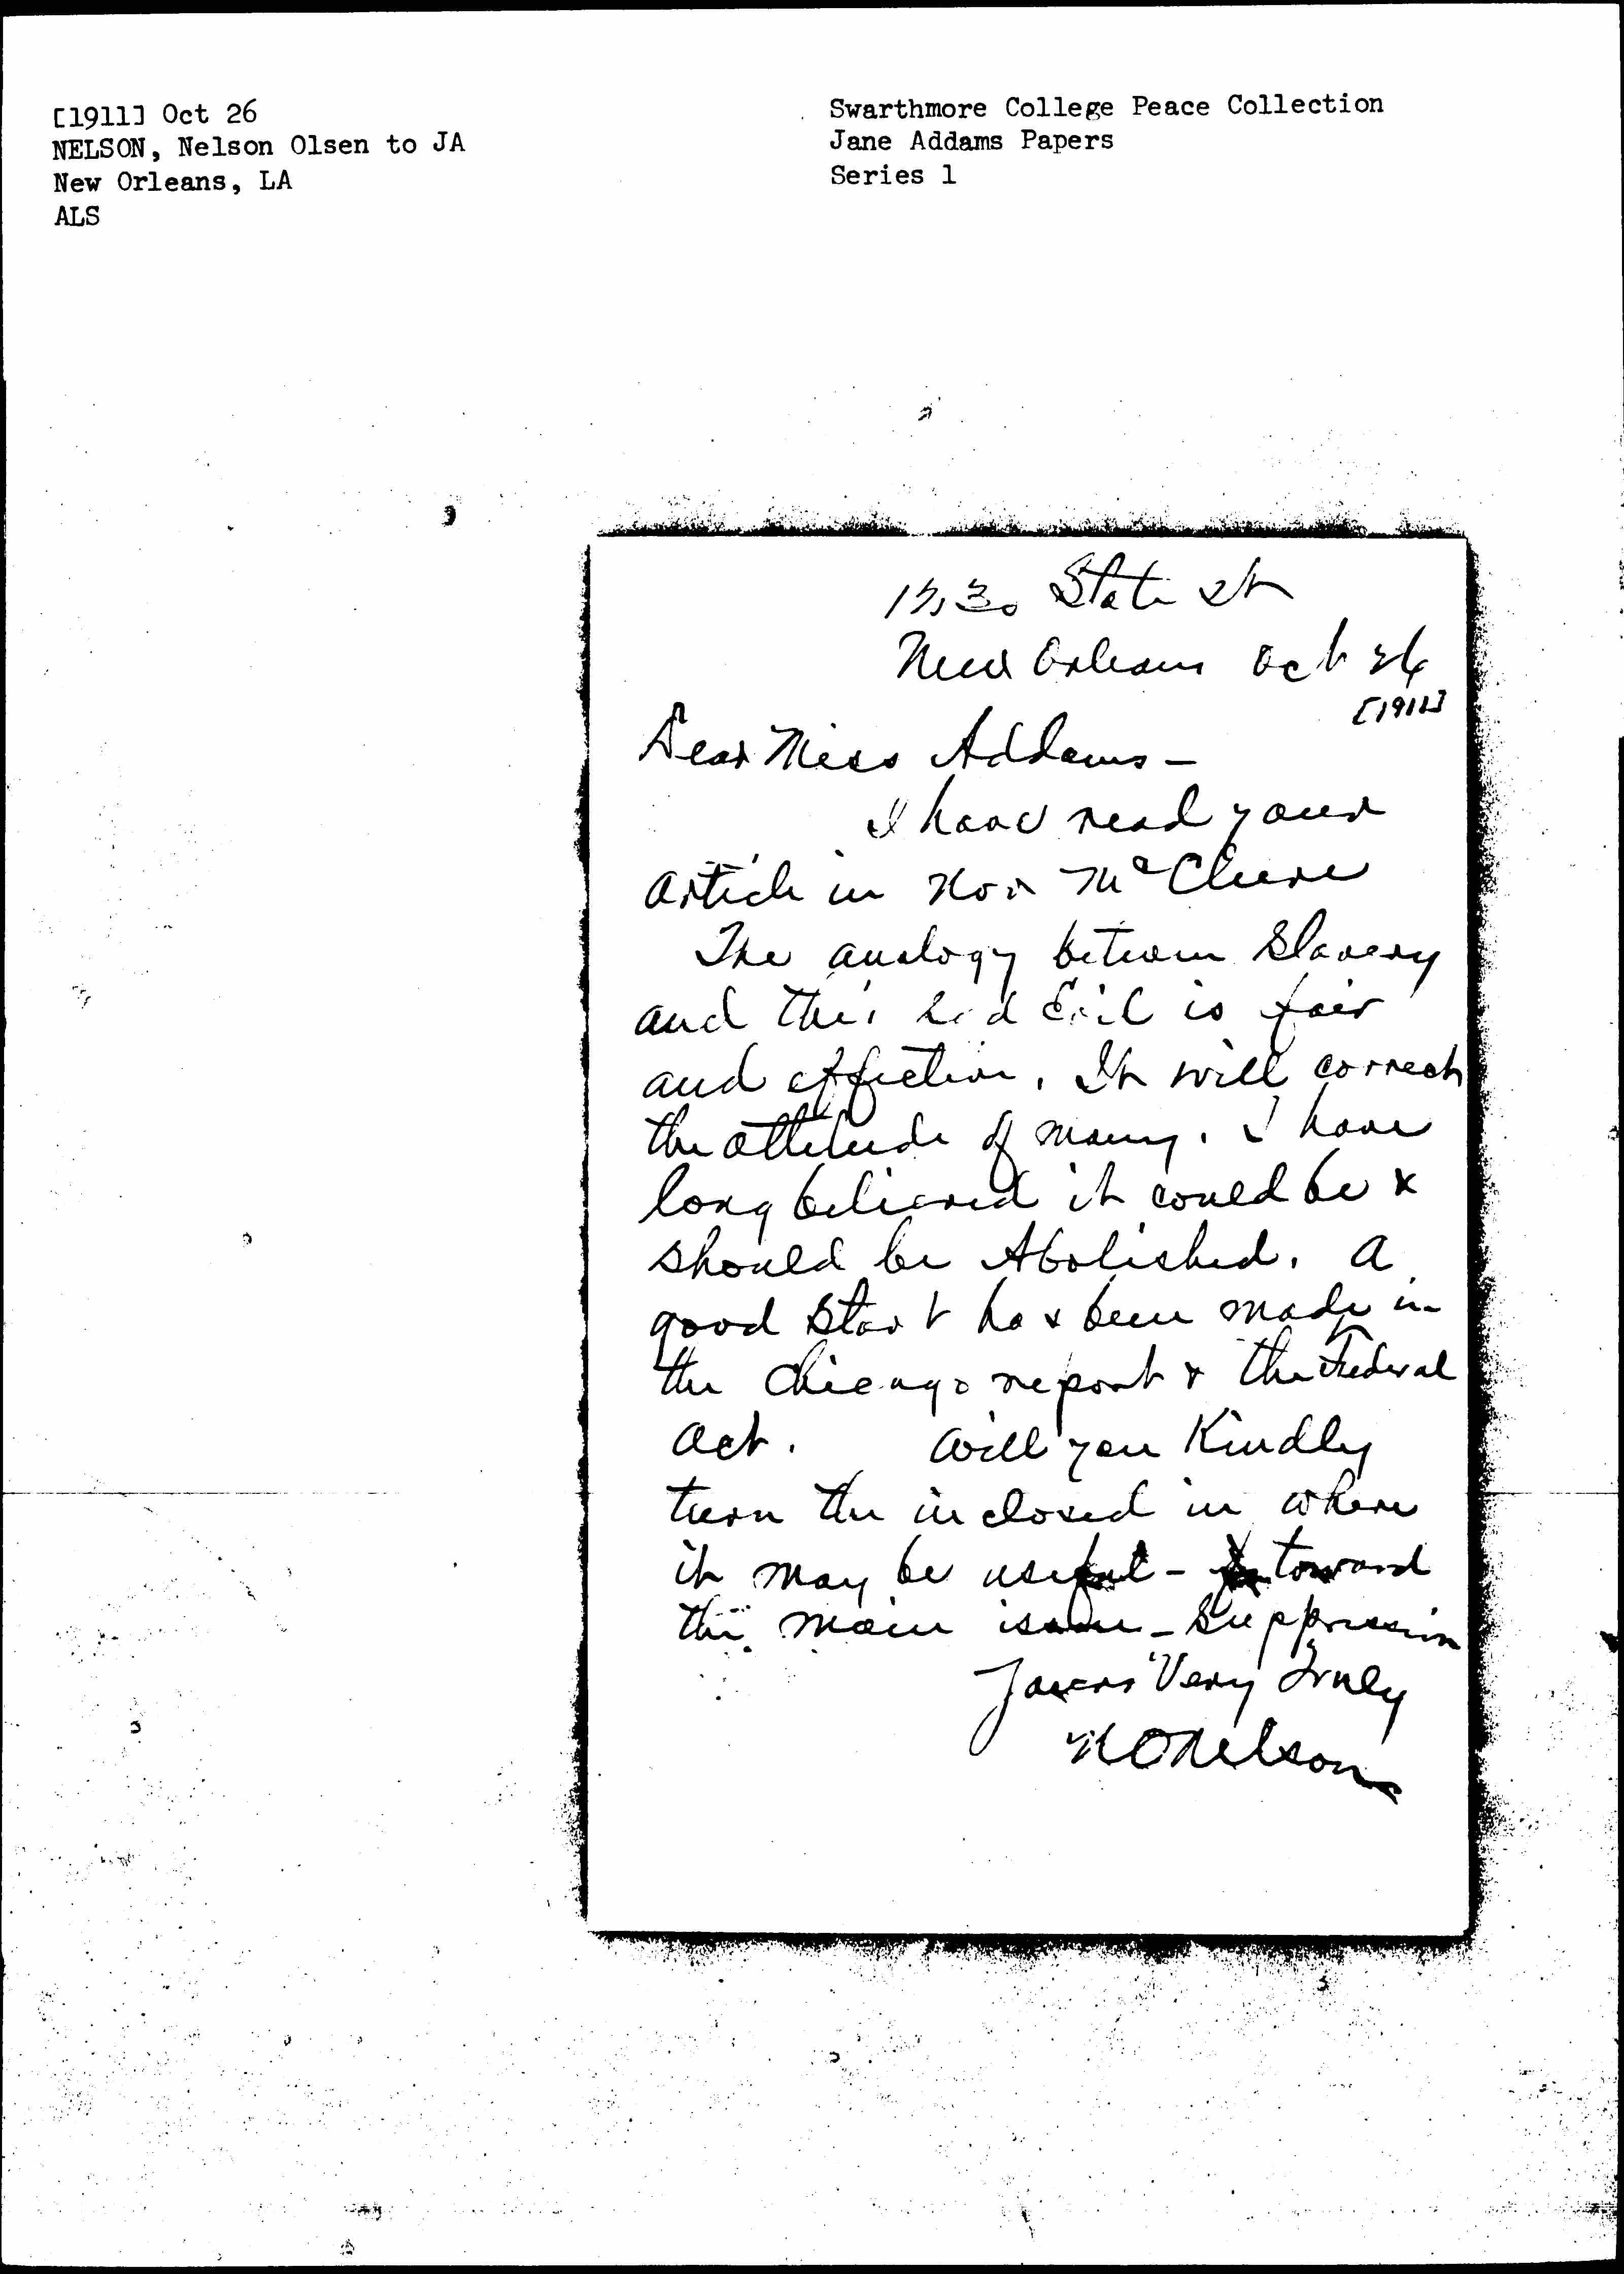 [1911] Oct 26
NELSON, Nelson Olsen to JA
New Orleans, LA
ALS
Swarthmore College Peace Collection
Jane Addams Papers
Series 1
State St
New Orleans Oct 26
[1911]
Dear Miss Addams -
I have read your
article in Nov McClure
The analogy between Slavery
and this Evil is fair
and effective. It will correct
the attitude of many. I have
long believed it could be &
should be Abolished. A
good start has been made in
the Chicago report & the Federal
Act. Will you Kindly
turn the inclosed in where
it may be useful - toward
the main issue - Suppression
Yours Very Truly
N O Nelson